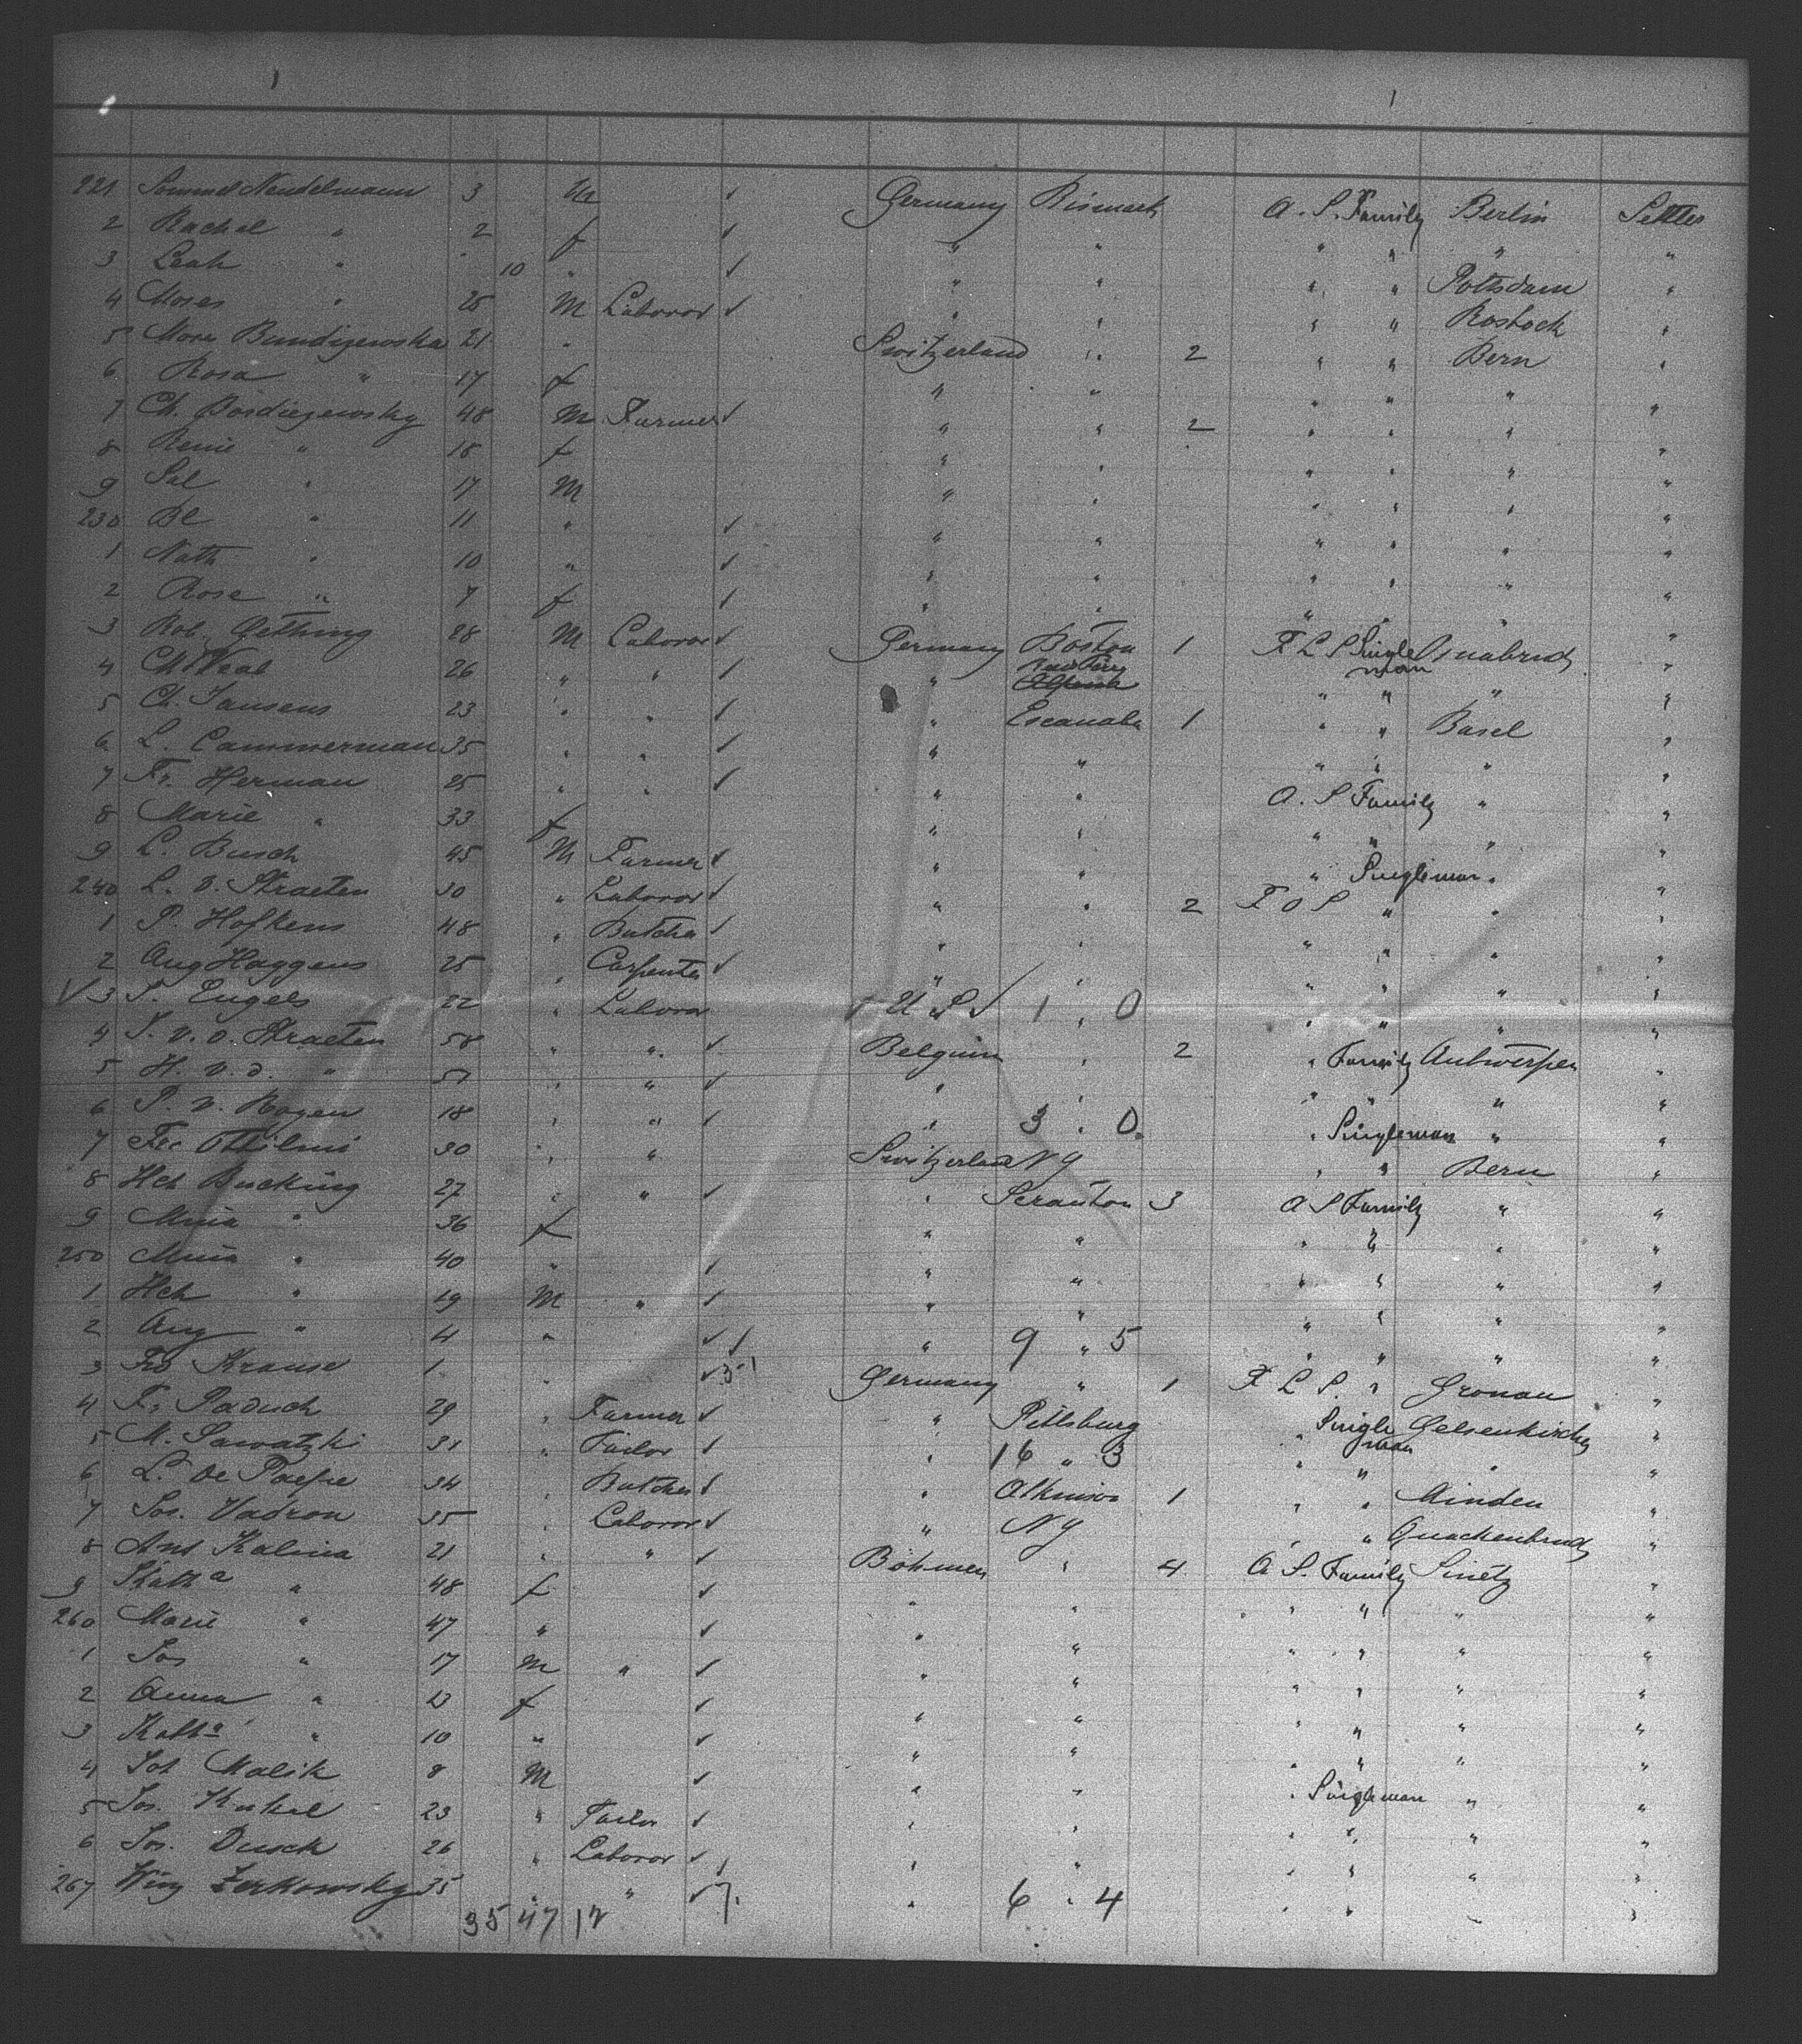 221 Sammel Neudelmann 3 M ✓ Germany Bismark A. S. Family Berlin Settler
2 Rachel " 2 f ✓ " " " " " "
3 Leah " 10 " ✓ " " " " Pottsdam "
4 Moses " 25 M Laboror ✓ " " " " Rostock "
5 Mose 21 " Switzerland " 2 " " Bern "
6 Rosa " 17 f " " " " " "
7 Ch. 48 M Farmer ✓ " " 2 " " " "
8 " 18 f " " " " " "
9 Sal " 17 M " " " " " "
230 Be " 11 " ✓ " " " " " "
1 Nath " 10 " ✓ " " " " " "
2 Rose " 7 f ✓ " " " " " "
3 Rob. Gething 28 M Laboror ✓ Germany Boston 1 F L S Single man Osnabruck "
4 26 " " ✓ " " " " "
5 Ch. Jansens 23 " " ✓ " Escanaba 1 " " Basel "
6 L. Cammerman 35 " " ✓ " " " " " "
7 Fr. Herman 25 " " ✓ " " A. S Family " "
8 Marie " 33 f " " " " " "
9 L. Busch 45 M Farmer ✓ " " " Singleman " "
240 L. v. Straeten 30 " Laboror ✓ " " 2 F O S " " "
1 P. Hofkens 48 " Butcher ✓ " " " " " "
2 Aug Haggens 25 " Carpenter ✓ " " " " " "
✓ 3 P. Engels 22 " Laboror U S ✓ 1 " 0 " " " "
4 J. v. d. Straeten 58 " " ✓ Belguim " 2 " Family Antwerpen "
5 H. v. d. " 51 " " ✓ " " " " " "
6 P. v. Rogen 18 " " ✓ " 3 " 0 " Singleman " "
7 30 " " Switzerland N Y " " Bern "
8 Hch Bucking 27 " " ✓ " Scranton 3 A S Family " "
9 " 36 f " " " " " "
250 " 40 " ✓ " " " " " "
1 Hch " 19 M " ✓ " " " " " "
2 Aug " 4 " ✓ " 9 " 5 " " " "
3 Krause 1 " ✓ Germany " 1 F L S. " Gronau "
4 Fr Paduch 29 " Farmer ✓ " Pittsburg " Single man Gelsenkirchen "
5 M. Sawatzki 31 " Tailor ✓ " 16 " 3 " " " "
6 L. De Paepe 34 " Butcher ✓ " Atkinson 1 " " Minden "
7 Jos. Vadron 35 " Laboror ✓ " N Y " " Quackenbruck "
8 Ant Kalina 21 " " ✓ Böhmen " 4 A S. Family "
9 Katha " 48 f ✓ " " " " " "
260 Marie " 47 " ✓ " " " " " "
1 Jos " 17 M " ✓ " " " " " "
2 Anna " 13 f ✓ " " " " " "
3 Katha " 10 " ✓ " " " " " "
4 Joh Malik 8 M ✓ " " " Singleman " "
5 Jos. Kukal 23 " Tailor ✓ " " " " " "
6 Jos. Dusek 26 " Laboror ✓ " " " " " "
267 Zerkowsky 35 " " ✓ 7. " 6 " 4 " " " "
35 47 12